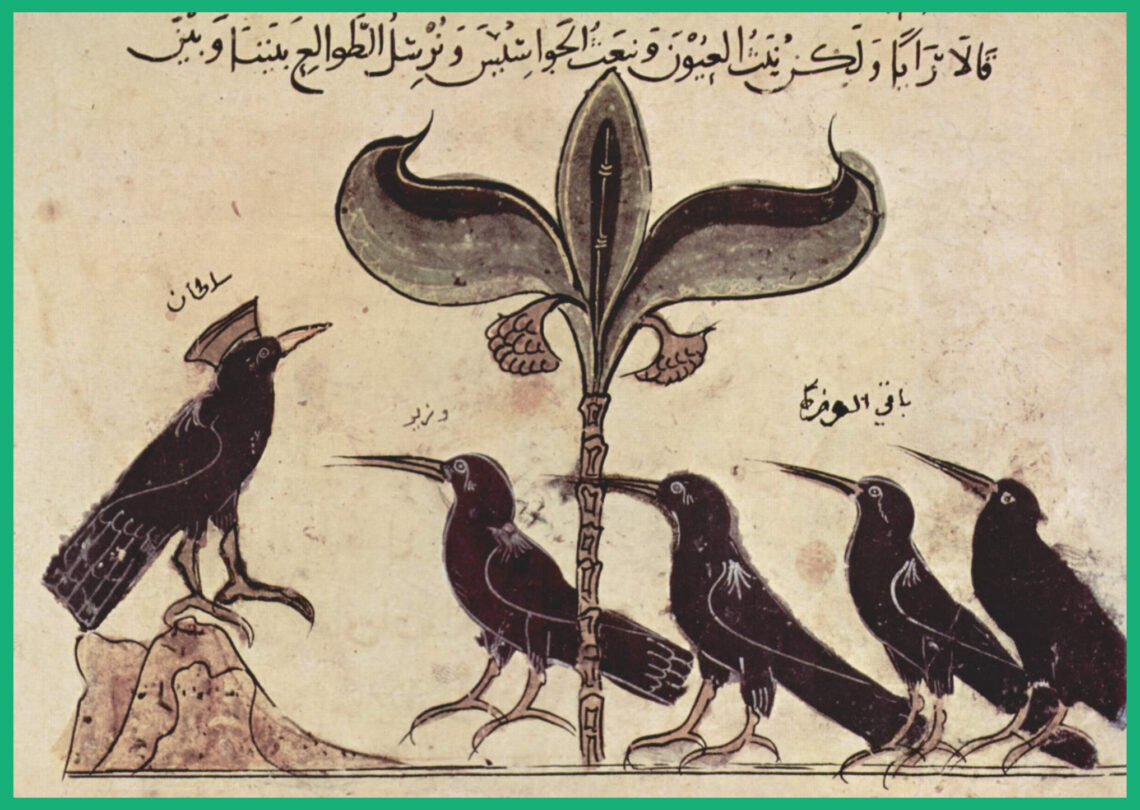 قالا رَايًا وَلكن نبثُ العيُوْنَ وَنبعَثُ الجَواسِيْسَ وَنُرْسِلُ الطَّوالِعِ بَيننا وَبَيْنَ
سلطان
وزير
باقي الوزرا